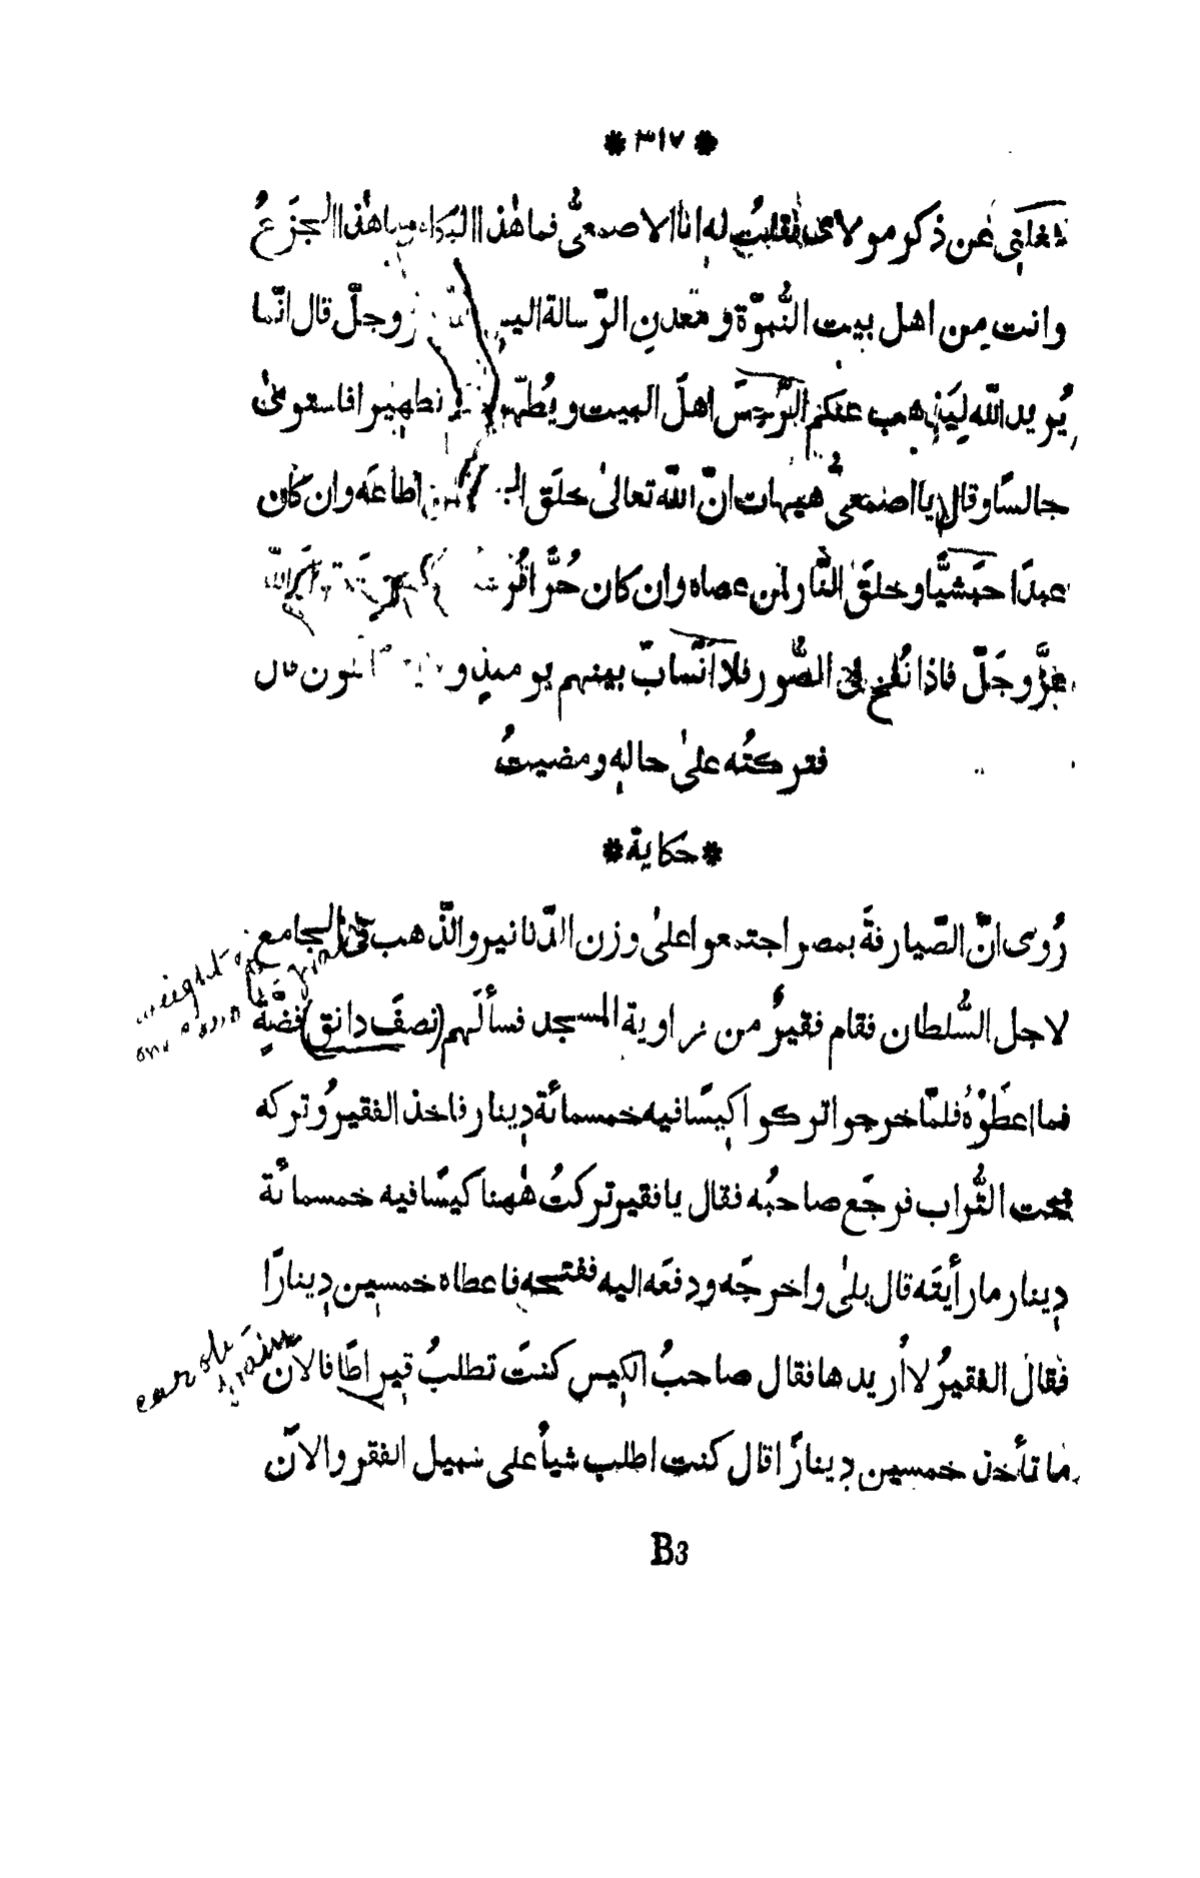 * ٣١٧ *
شغلني عن ذكر مولاي فقلتُ له انا الاصمعيُّ فما هٰذا البكاء وما هٰذا الجزَعُ
وانت مِن اهل بيت النُّبوّة ومَعدنِ الرّسالة اليس وجلّ قال انّما
يُريد الله لِيَذهب عنكم الرِّجسَ اهلَ البيت ويُطهّركم تطهيرا فاستوىٰ
جالسًا وقال يا اصمعيُّ هيهات انّ الله تعالىٰ خلَق لمن اطاعَه وان كان
عبدًا حبَشيًّا وخلقَ النّار لمن عصاه وان كان حُرًّا الله
عزَّ وجَلّ فاذا نُفخ في الصُّور فلا انسابَ بينهم يومئذٍ و قال
فتركتُه علىٰ حالِه ومضيتُ
* حكاية *
رُوِي انّ الصّيارفةَ بمصر اجتمعوا علىٰ وزن الدّنانير والذّهب في الجامع
لاجل السُّلطان فقام فقيرٌ من زاوية المسجد فسألَهم (نصفَ دانق) فضّةٍ
فما اعطَوْهُ فلمّا خرجوا تركوا كِيسًا فيه خمسمائة دِينار فاخذ الفقيرُ وتركه
تحت التُّراب فرجَع صاحبُه فقال يا فقير تركتُ هٰهنا كيسًا فيه خمسمائة
دِينار ما رأيتَه قال بلىٰ واخرجَه ودفعَه اليه ففتحه فاعطاه خمسين دِينارًا
فقال الفقيرُ لا أُريدها فقال صاحبُ الكِيس كنتَ تطلبُ قِيراطًا فالآن
ما تأخذ خمسين دِينارًا قال كنت اطلب شيأ على سبيل الفقر والآن
B3